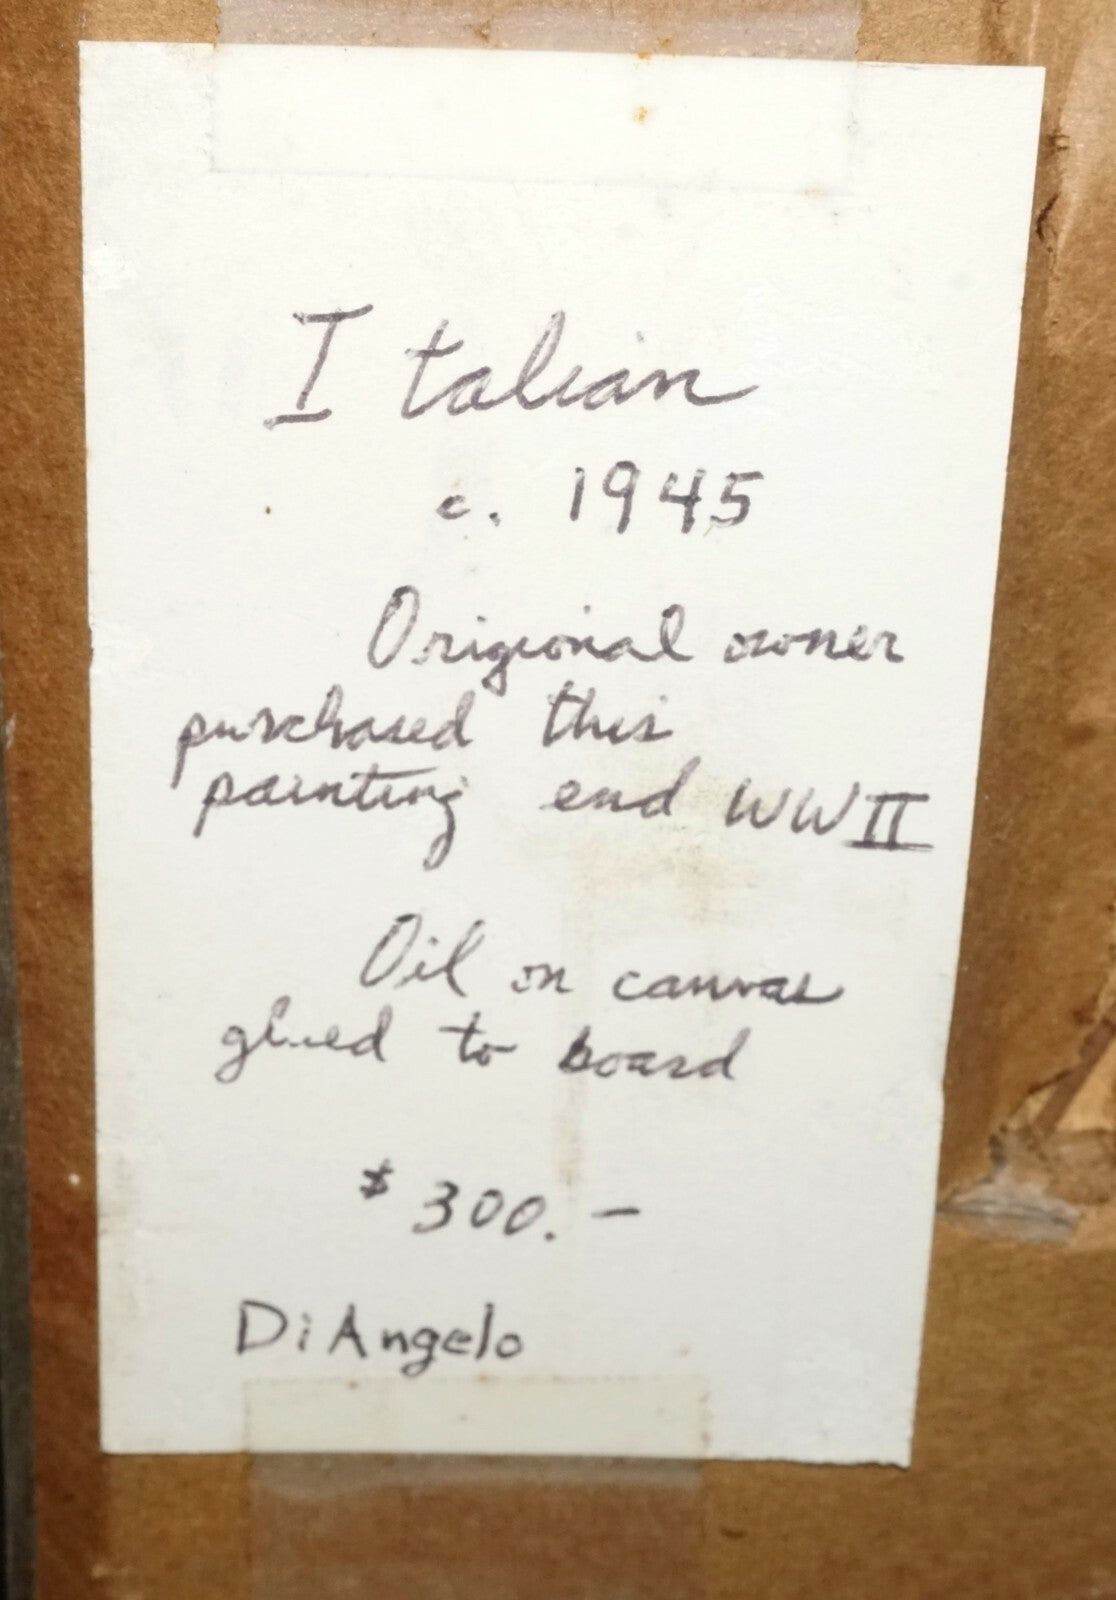 Italian
c. 1945
Origional owner
purchased this
painting end WWII
Oil on canvas
glued to board
$ 300. –
DiAngelo